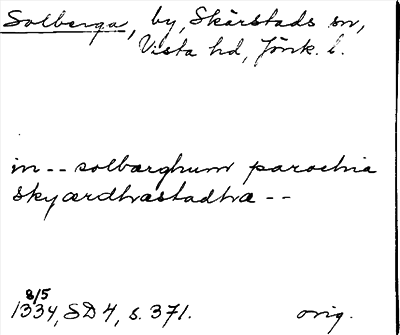 Solberga, by, Skärstads sn,
Vista hd, Jönk. l.
in -- solbærghum parochia
skyærdhæstadhæ --
8/5
1334, SD 4, s. 371. orig.